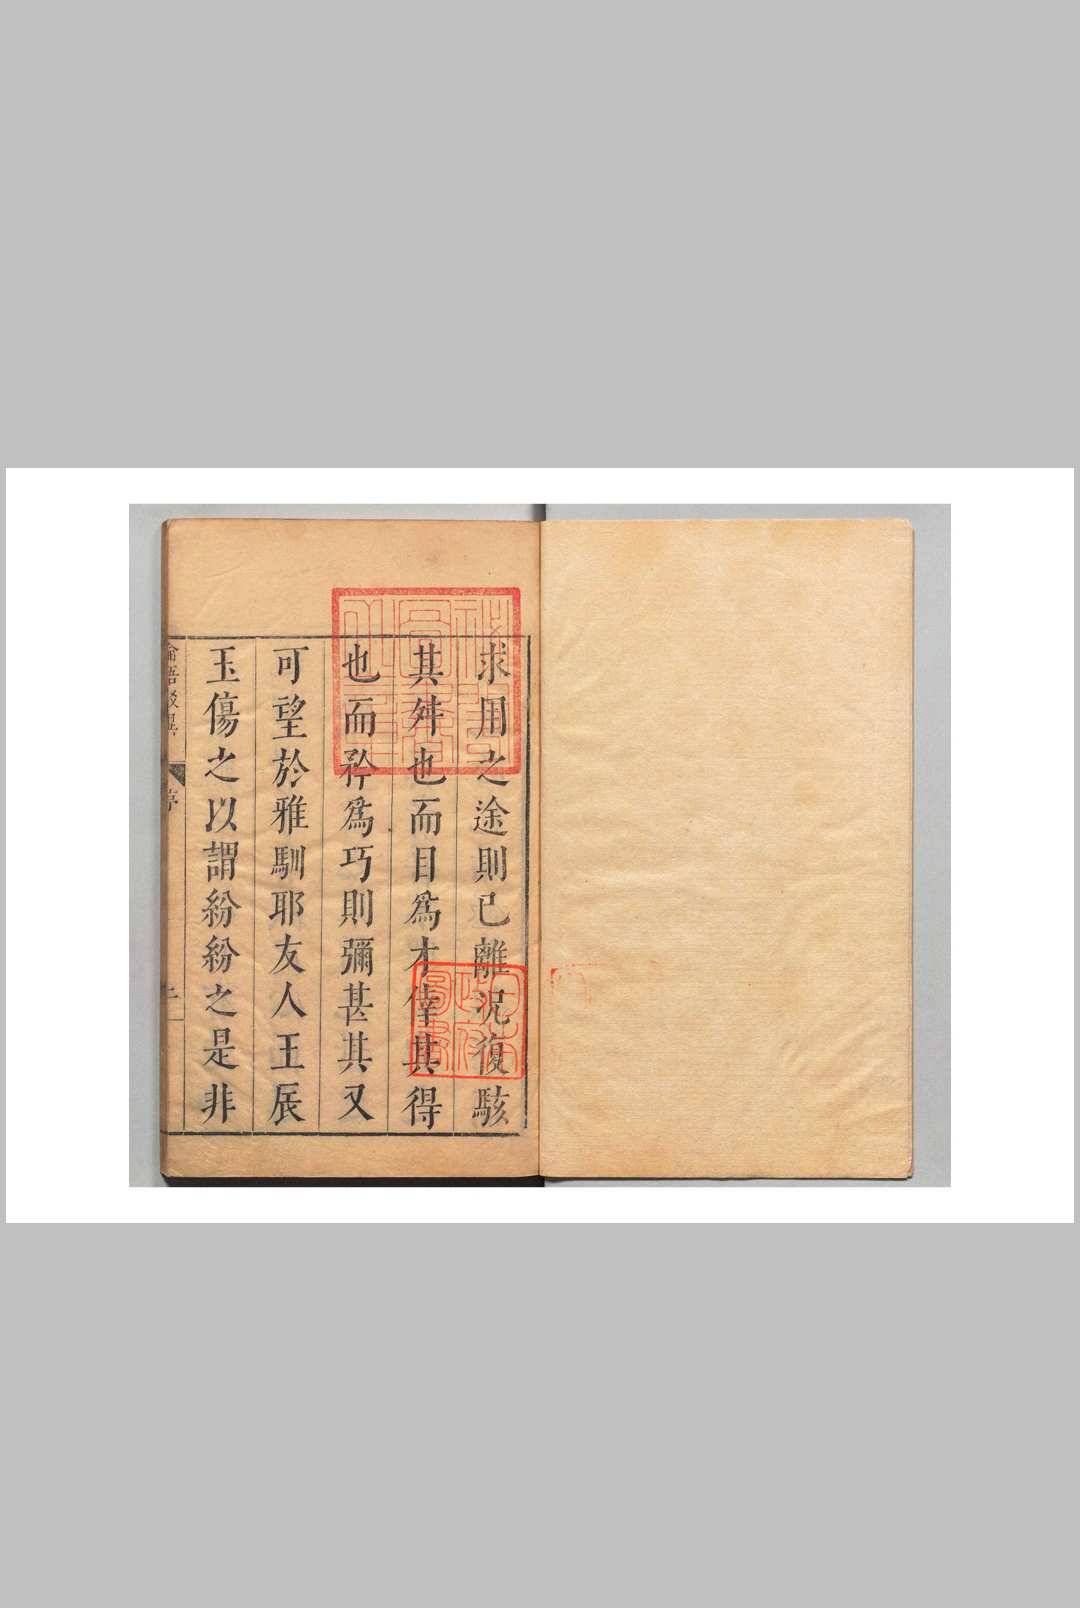 求用之途則已離況復駭
其舛也而目爲才倖其得
也而矜爲巧則彌甚其又
可望於雅馴耶友人王辰
玉傷之以謂紛紛之是非
論語駁異
序
日本
政府
圖書